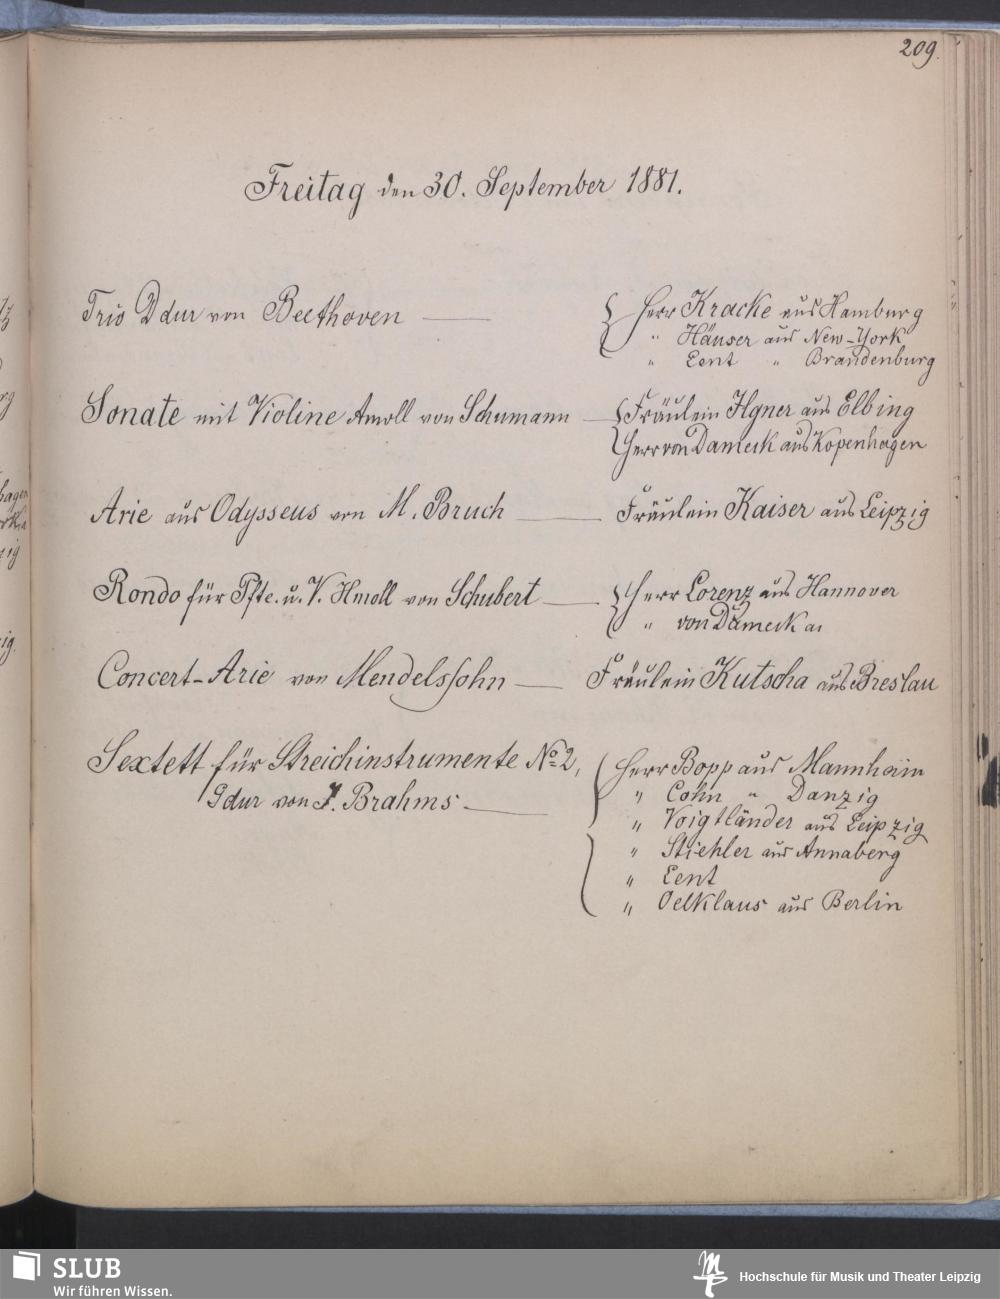 209.
Freitag den 30. September 1881.
Trio Ddur von Beethoven
Herr Kracke aus Hamburg
" Häuser aus New-York
" Lent " Brandenburg
Sonate mit Violine Amoll von Schumann
Fräulein Ilgner aus Elbing
Herr von Dameck aus Kopenhagen
Arie aus Odysseus von M. Bruch
Fräulein Kaiser aus Leipzig
Rondo für Pfte. u. V. Hmoll von Schubert
Herr Lorenz aus Hannover
" von Dameck
Concert-Arie von Mendelssohn
Fräulein Kutscha aus Breslau
Sextett für Streichinstrumente No 2,
Gdur von J. Brahms
Herr Bopp aus Mannheim
" Cohn " Danzig
" Voigtländer aus Leipzig
" Stiehler aus Annaberg
" Lent
" Oelklaus aus Berlin
SLUB
Wir führen Wissen.
Hochschule für Musik und Theater Leipzig